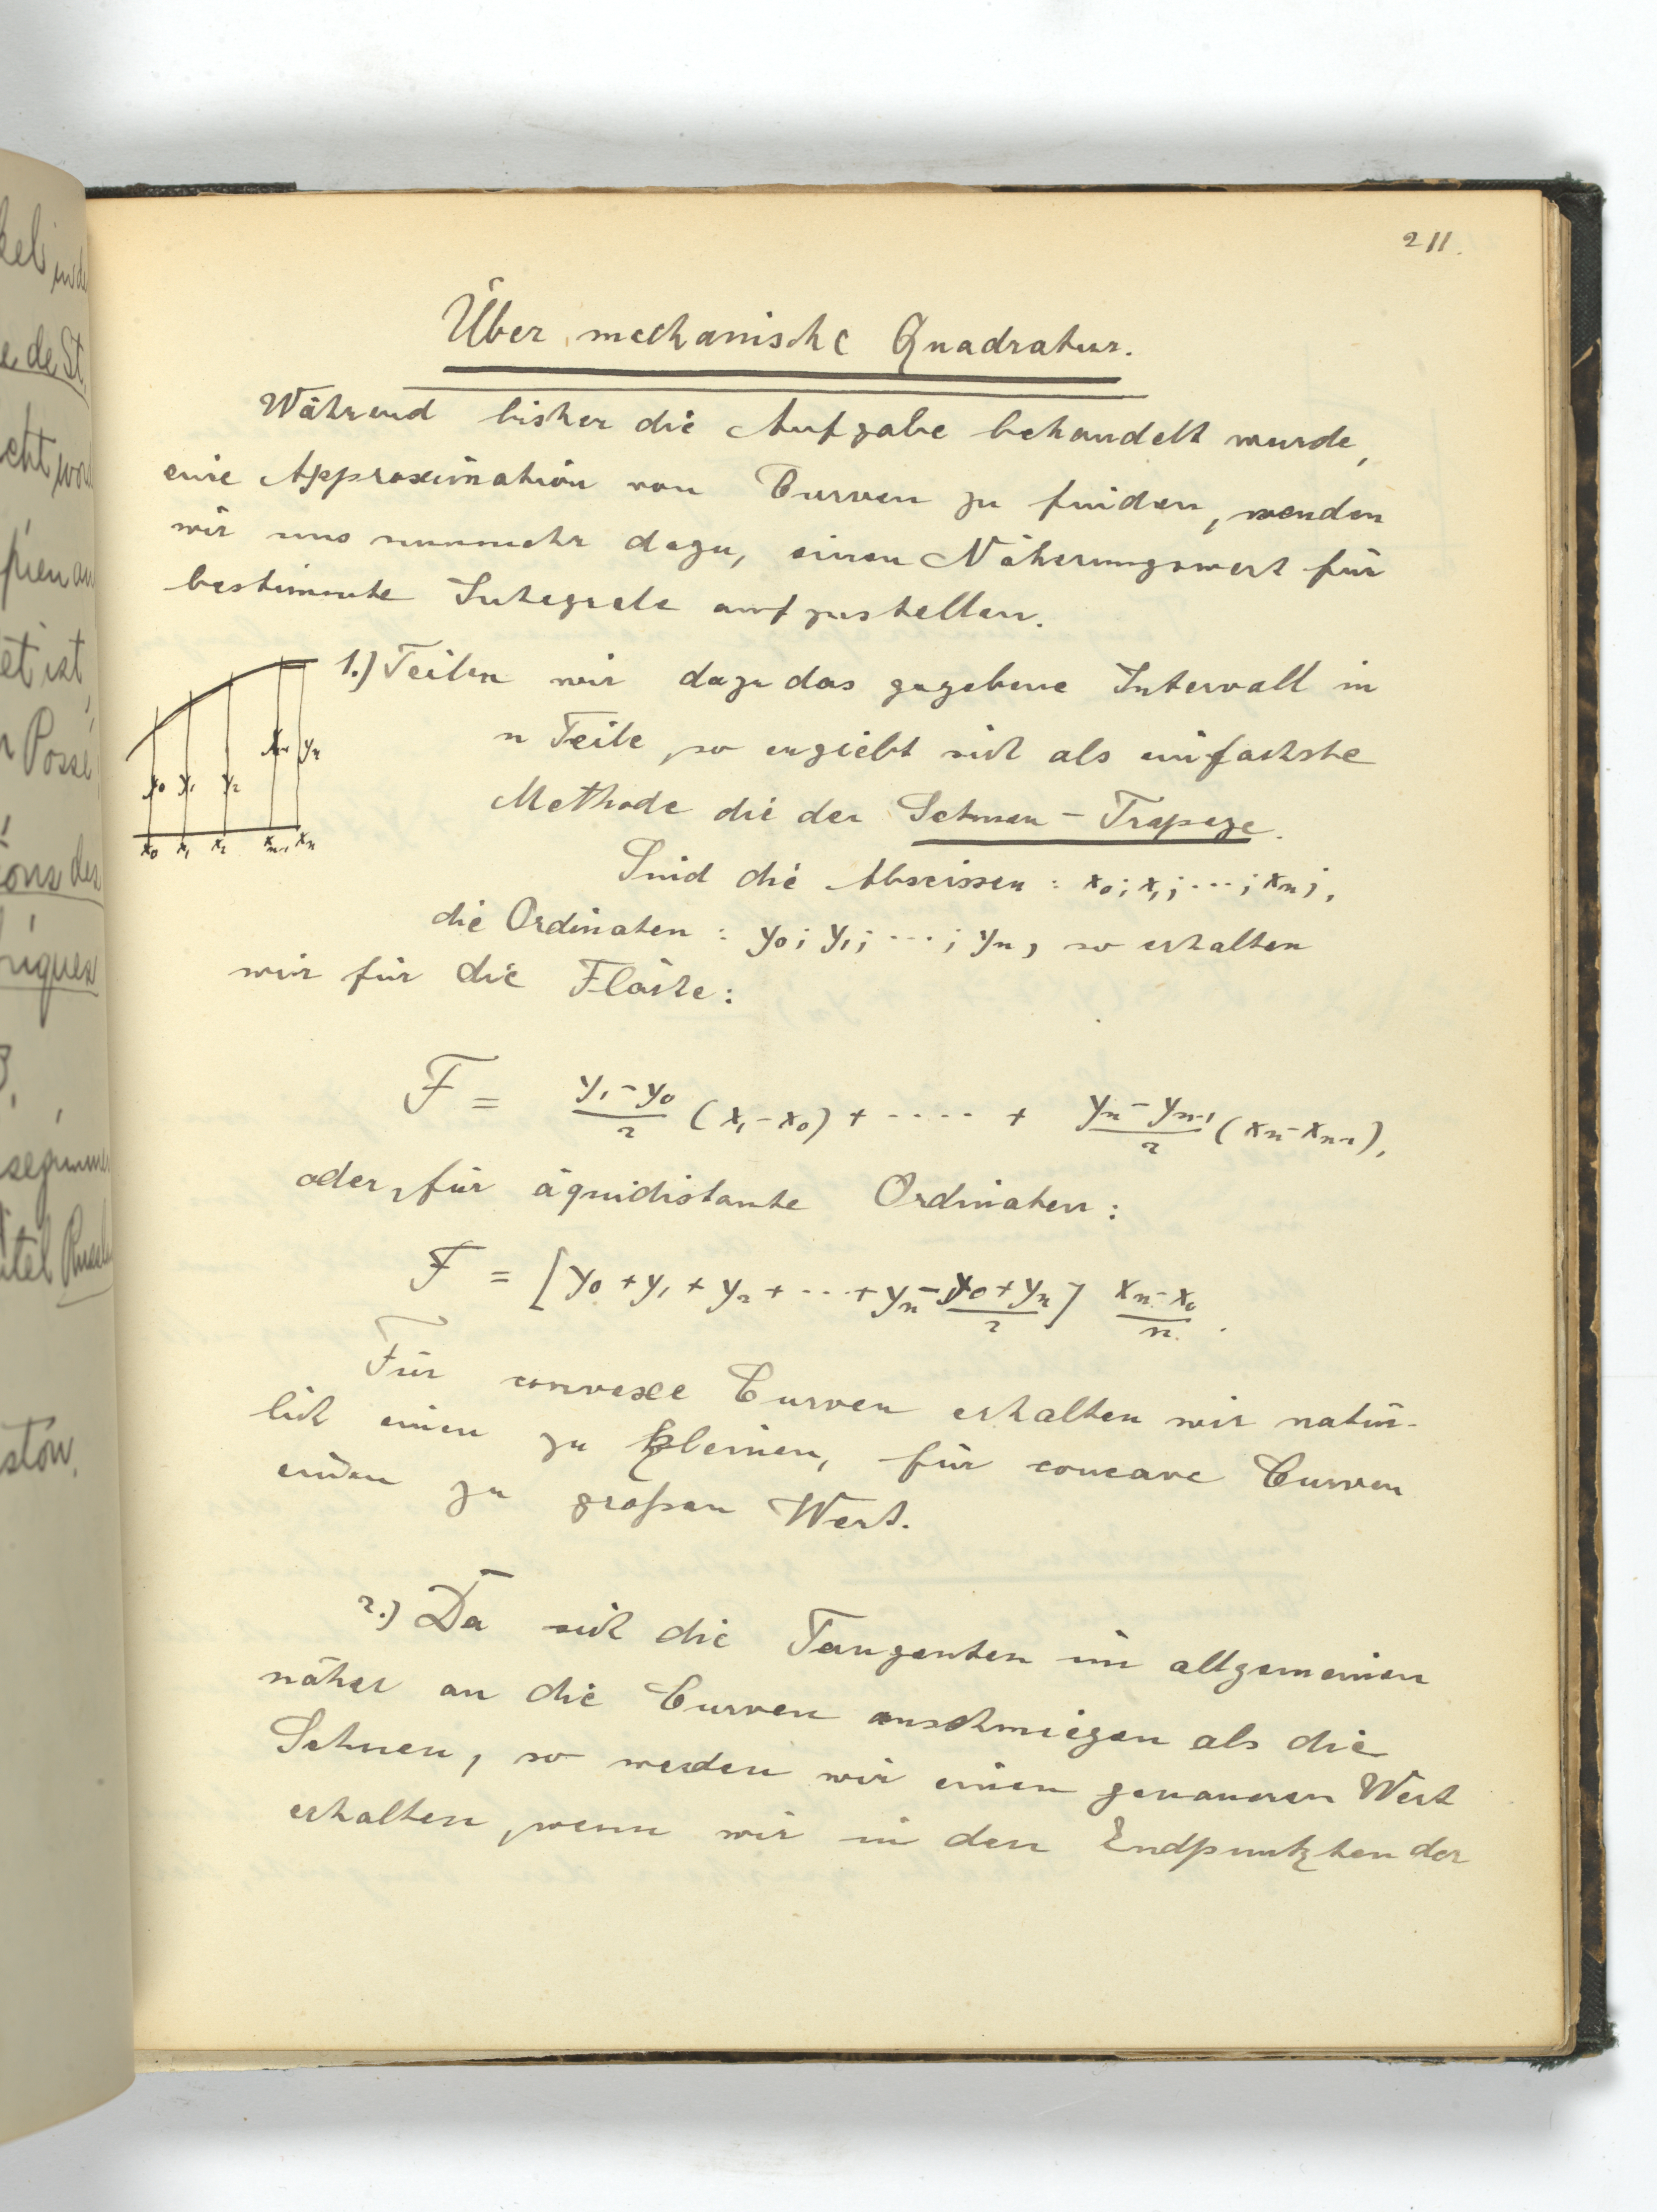 211.
Über mechanische Quadratur.
Während bisher die Aufgabe behandelt wurde,
eine Approximation von Curven zu finden, wenden
wir uns nunmehr dazu, einen Näherungswert für
bestimmte Integrale aufzustellen.
1.) Teilen wir dazu das gegebene Intervall in
n Teile, so ergiebt sich als einfachste
Methode die der Sehnen-Trapeze.
y0 y1 y2 yn-1 yn
x0 x1 x2 xn-1 xn
Sind die Abscissen: x0; x1; ...; xn;,
die Ordinaten: y0; y1; ...; yn, so erhalten
wir für die Fläche:
F = (y1-y0)/2 (x1-x0) + ..... + (yn-yn-1)/2 (xn-xn-1),
oder, für äquidistante Ordinaten:
F = [y0+y1+y2+...+yn-(y0+yn)/2] (xn-x0)/n.
Für convexe Curven erhalten wir natür-
lich einen zu kleinen, für concave Curven
einen zu großen Wert.
2.) Da sich die Tangenten im allgemeinen
näher an die Curven anschmiegen als die
Sehnen, so werden wir einen genaueren Wert
erhalten, wenn wir in den Endpunkten der
de St.
Possé